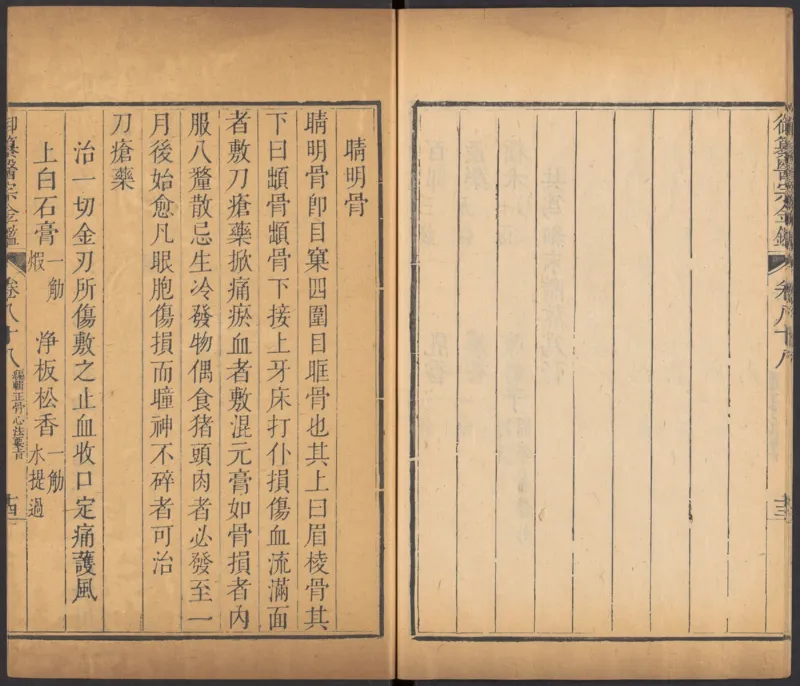 御纂醫宗金鑑 卷八十八 十三
睛明骨
睛明骨卽目窠四圍目眶骨也其上曰眉棱骨其
下曰䪼骨䪼骨下接上牙床打仆損傷血流滿面
者敷刀瘡藥掀痛瘀血者敷混元膏如骨損者內
服八釐散忌生冷發物偶食猪頭肉者必發至一
月後始愈凡眼胞傷損而瞳神不碎者可治
刀瘡藥
治一切金刃所傷敷之止血收口定痛護風
上白石膏 一觔煆 淨板松香 一觔水提過
御纂醫宗金鑑 卷八十八 編輯正骨心法要旨 十四